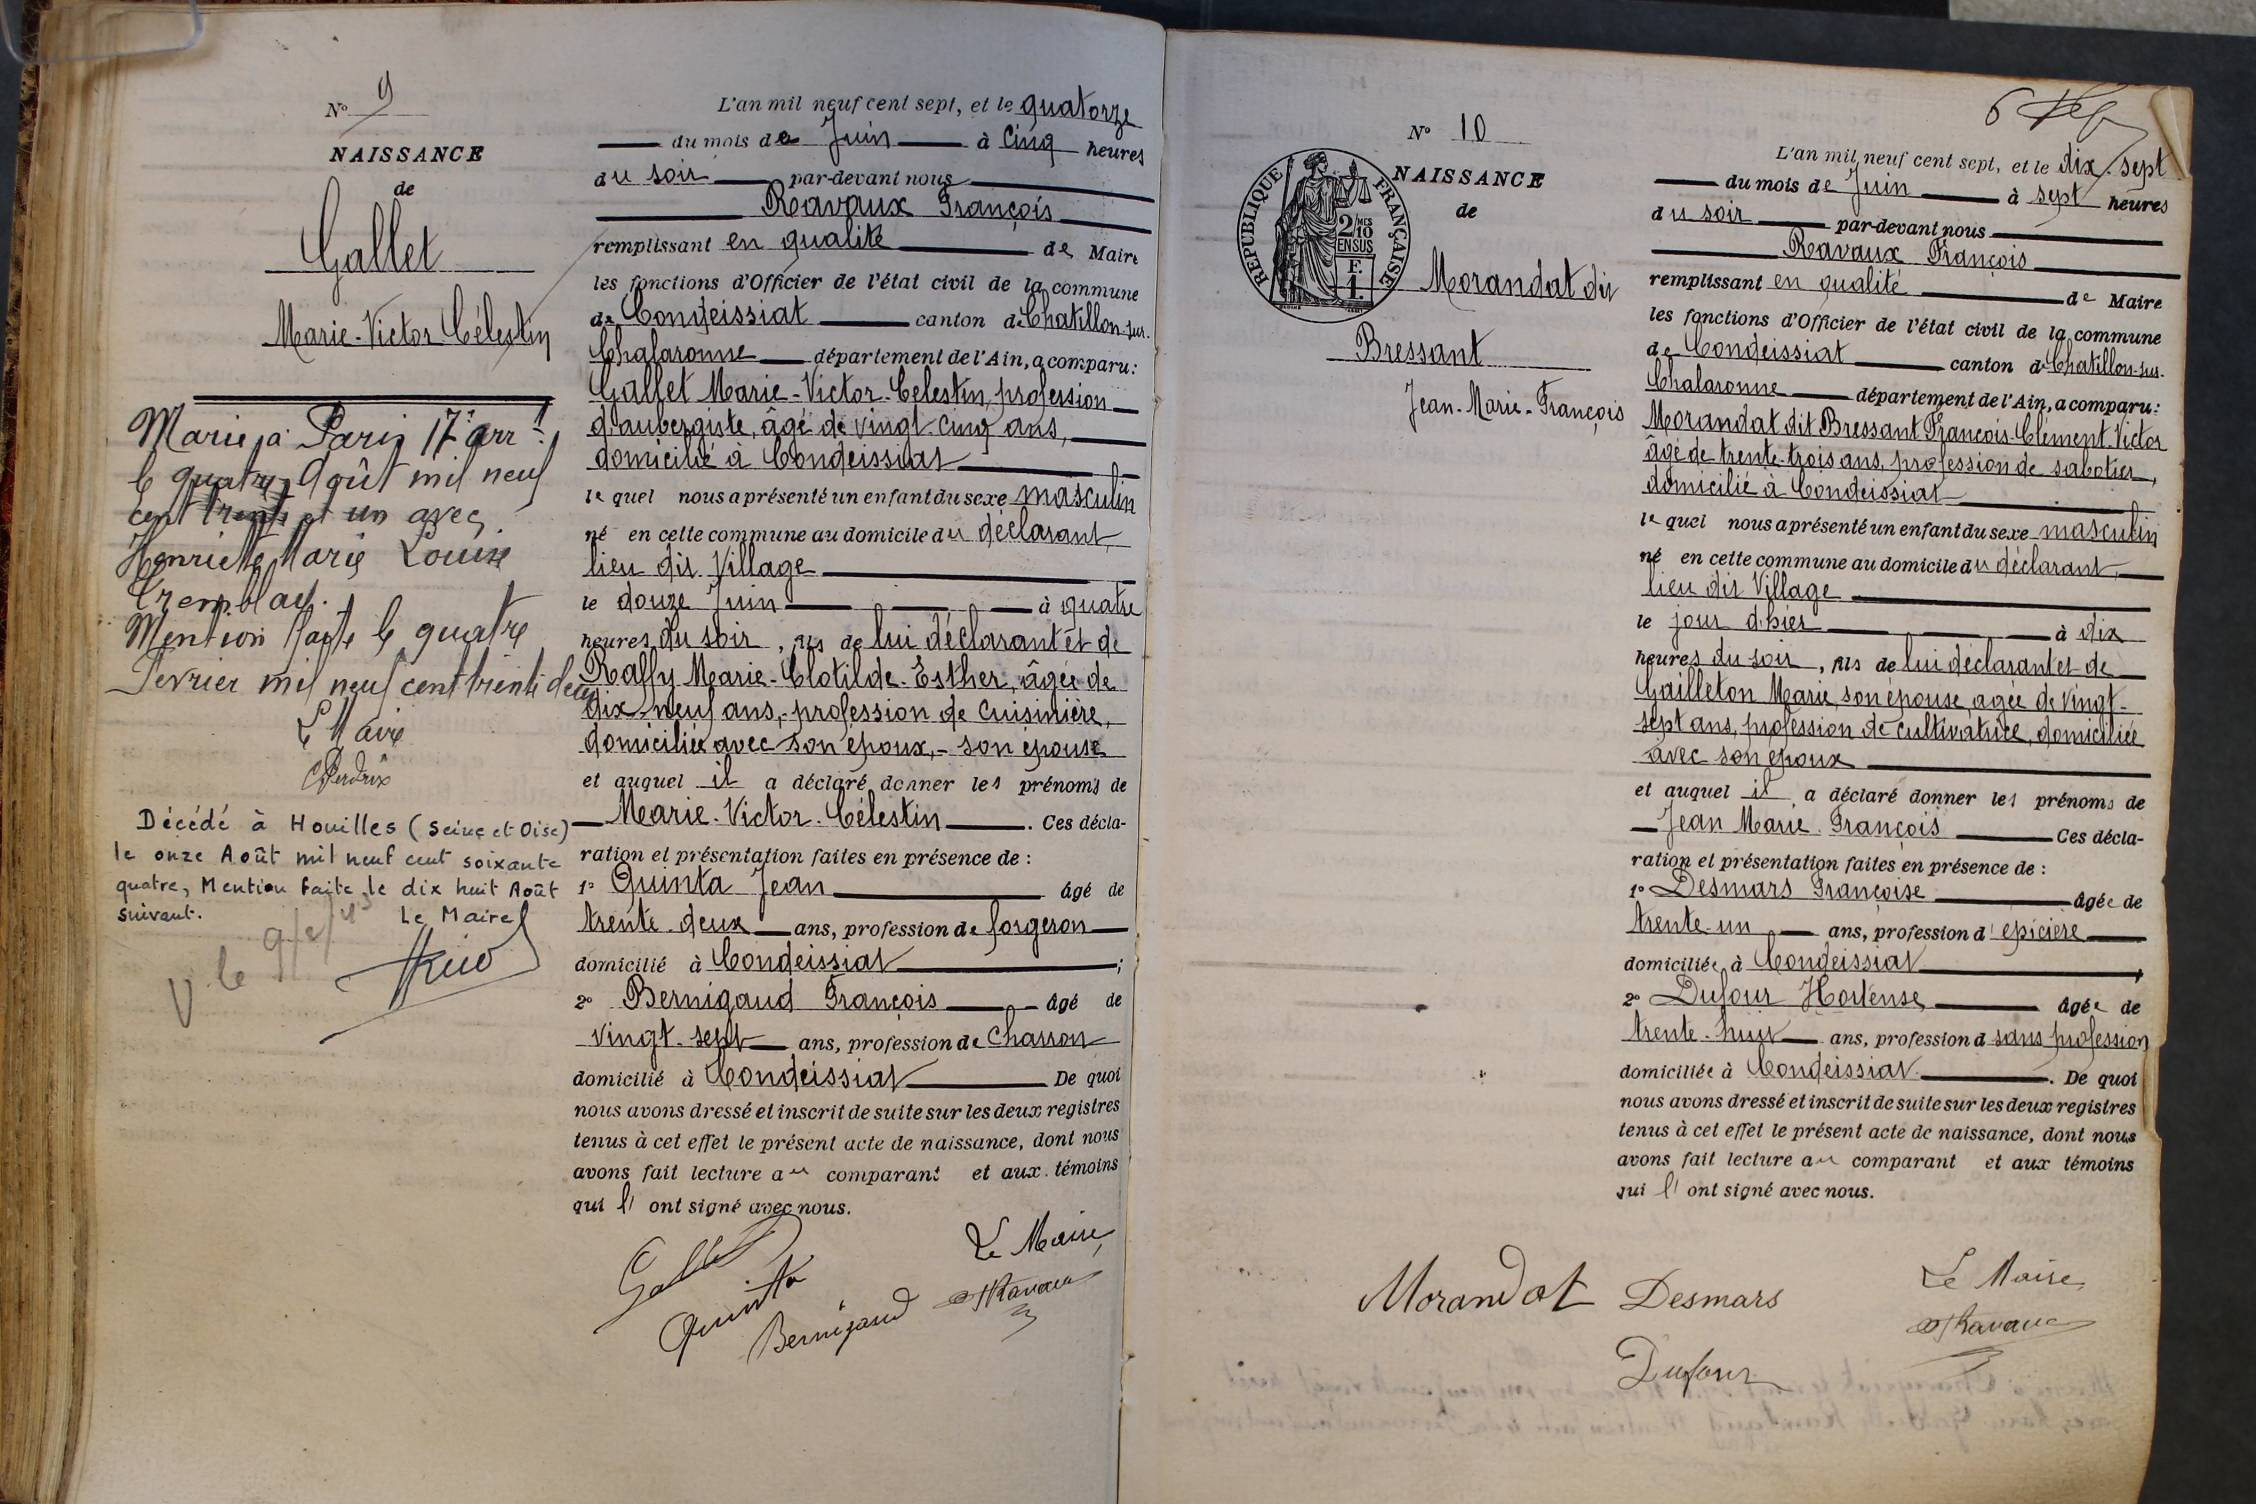 N° 9
NAISSANCE
de
Gallet
Marie-Victor-Célestin
Marié à Paris 17e arrt
le quatre Août mil neuf
cent trente et un avec
Henriette Marie Louise
Tremblay.
Mention faite le quatre
Février mil neuf cent trente deux
Le Maire
Décédé à Houilles (Seine et Oise)
le onze Août mil neuf cent soixante
quatre, Mention faite le dix huit Août
suivant.
Le Maire
L'an mil neuf cent sept, et le quatorze
du mois de Juin à cinq heures
du soir par-devant nous
Ravaux François
remplissant en qualité de Maire
les fonctions d'Officier de l'état civil de la commune
de Condeissiat canton de Chatillon-sur-
Chalaronne département de l'Ain, a comparu:
Gallet Marie-Victor-Celestin, profession
d'aubergiste, âgé de vingt-cinq ans,
domicilié à Condeissiat
lequel nous a présenté un enfant du sexe masculin
né en cette commune au domicile du déclarant,
lieu dit Village
le douze Juin à quatre
heures du soir, fils de lui déclarant et de
Raffy Marie-Clotilde-Esther, âgée de
dix-neuf ans,- profession de cuisinière,
domiciliée avec son époux,- son épouse
et auquel il a déclaré donner les prénoms de
Marie-Victor-Célestin. Ces décla-
ration et présentation faites en présence de :
1° Quinta Jean âgé de
trente-deux ans, profession de forgeron
domicilié à Condeissiat;
2° Bernigaud François âgé de
vingt-sept ans, profession de charron
domicilié à Condeissiat De quoi
nous avons dressé et inscrit de suite sur les deux registres
tenus à cet effet le présent acte de naissance, dont nous
avons fait lecture au comparant et aux témoins
qui l'ont signé avec nous.
Gallet
Quinta
Bernigaud
Le Maire,
Ravaux
N° 10
NAISSANCE
de
Morandat dit
Bressant
Jean-Marie-François
RÉPUBLIQUE FRANÇAISE
2/10 MES
EN SUS
F.
1.
6
L'an mil neuf cent sept, et le dix-sept
du mois de Juin à sept heures
du soir par-devant nous
Ravaux François
remplissant en qualité de Maire
les fonctions d'Officier de l'état civil de la commune
de Condeissiat canton de Chatillon-sur-
Chalaronne département de l'Ain, a comparu:
Morandat dit Bressant François-Clément-Victor
âgé de trente-trois ans, profession de sabotier,
domicilié à Condeissiat
lequel nous a présenté un enfant du sexe masculin
né en cette commune au domicile du déclarant,
lieu dit Village
le jour d'hier à dix
heures du soir, fils de lui déclarant et de
Gailleton Marie, son épouse, agée de vingt-
sept ans, profession de cultivatrice, domiciliée
avec son époux
et auquel il a déclaré donner les prénoms de
Jean Marie François Ces décla-
ration et présentation faites en présence de :
1° Desmars Françoise âgée de
trente-un ans, profession d'épicière
domiciliée à Condeissiat,
2° Dufour Hortense, âgée de
trente-huit ans, profession d sans profession
domiciliée à Condeissiat. De quoi
nous avons dressé et inscrit de suite sur les deux registres
tenus à cet effet le présent acte de naissance, dont nous
avons fait lecture au comparant et aux témoins
qui l'ont signé avec nous.
Morandat
Desmars
Dufour
Le Maire,
Ravaux